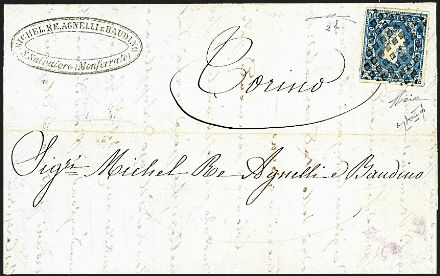 MICHEL, RE, AGNELLI E BAUDINO
S. Salvatore (Monferrato)
24
Torino
Sigri Michel Re Agnelli e Baudino